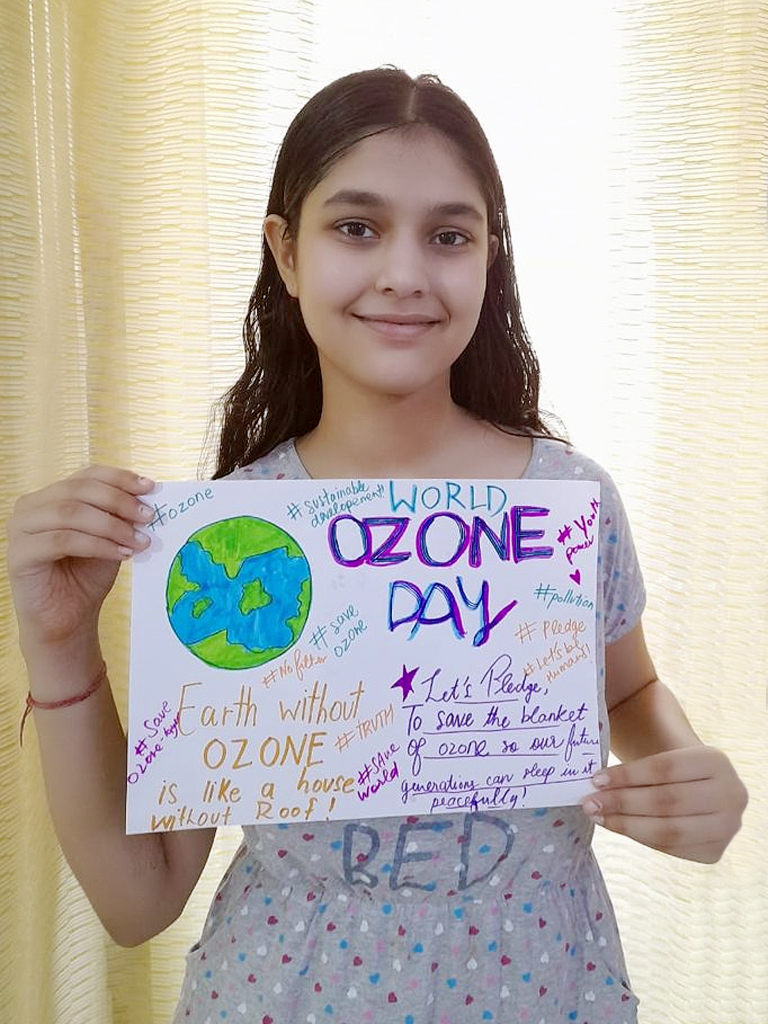 #ozone
#sustainable
developement!
WORLD
OZONE
DAY
#Youth
power
#pollution
#Pledge
#Let's be
Humans!
#save
ozone
#No filter
Earth without
OZONE
is like a house
without Roof!
#Save
#TRUTH
#SAve
world
Let's Pledge,
To save the blanket
of ozone so our future
generations can sleep in it
peacefully!
BED